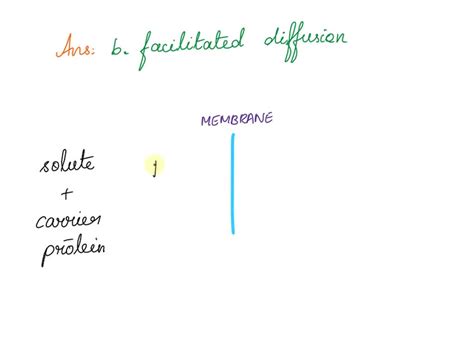 Ans: b. facilitated diffusion
MEMBRANE
solute
+
carrier
protein